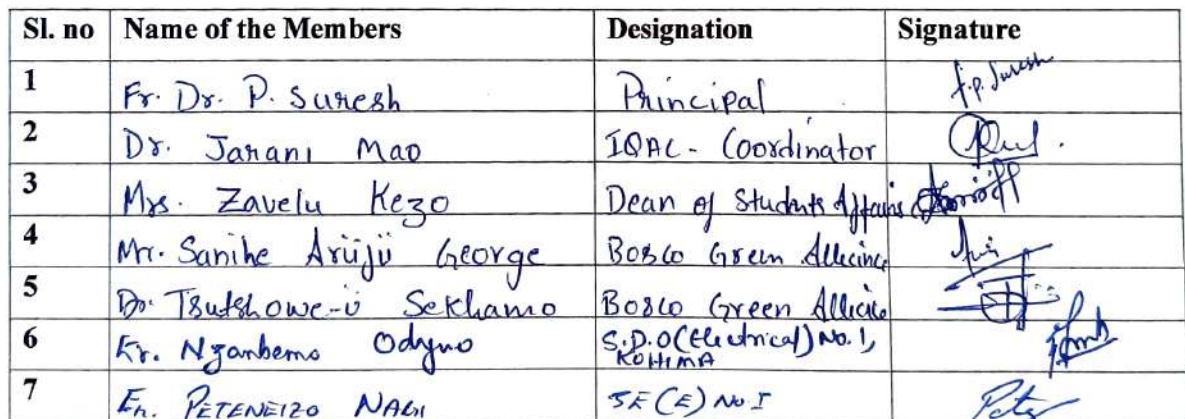 Sl. no Name of the Members Designation Signature
1 Fr. Dr. P. Suresh Principal f.p. Suresh
2 Dr. Jarani Mao IQAC - Coordinator
3 Mrs. Zavelu Kezo Dean of Students Affairs
4 Mr. Sanihe Arüjü George Bosco Green Allicince
5 Dr. Tsutshowe-ü Sekhamo Bosco Green Allicice
6 Er. Nzanbemo Odyuo S.D.O (Electrical) No. 1,
KOHIMA
7 Er. PETENEIZO NAGI JE (E) No. I Pete